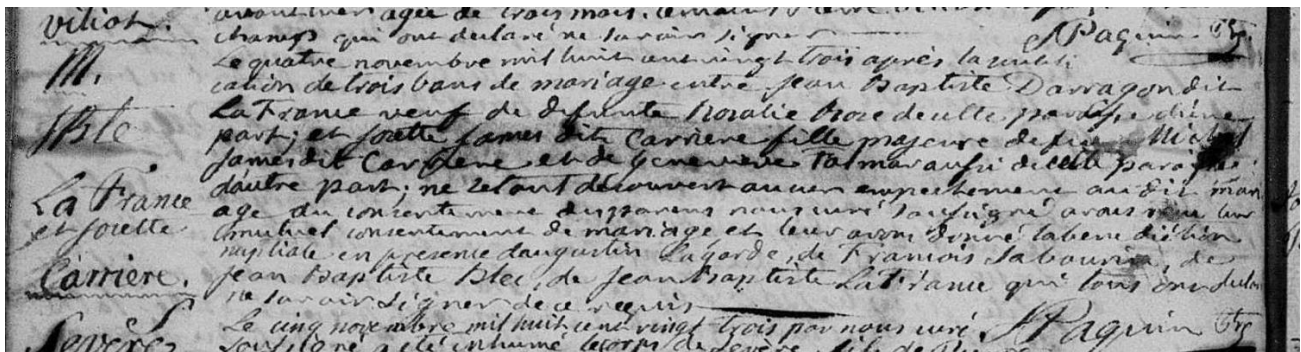 viliot.
avanthier agée de trois mois. témoins Pierre
champs qui ont declaré ne savoir signer
J Paquin Ptre
M.
JBte
La France
et Josette
Carriere.
Le quatre novembre mil huit cent vingt trois après la publi
cation de trois bans de mariage entre Jean Baptiste Darragon dit
La France veuf de defunte Rosalie Roze de cette paroisse d'une
part; et Josette James dit Carriere fille majeure de feu Michel
James dit Carriere et de Genevieve Talmar aussi de cette paroisse
d'autre part; ne s'etant découvert aucun empechement au dit mari
age du consentement des parens nous curé soussigné avons reçu leur
mutuel consentement de mariage et leur avons donné la benediction
nuptiale en presence d'augustin Lagarde, de Francois Sabourin, de
Jean Baptiste Blec, de Jean Baptiste La France qui tous ont declaré
ne savoir signer de ce requis
J Paquin Ptre
Severe
Le cinq novembre mil huit cent vingt trois par nous curé
soussigné a été inhumé le corps de Severe, fils de Pierre